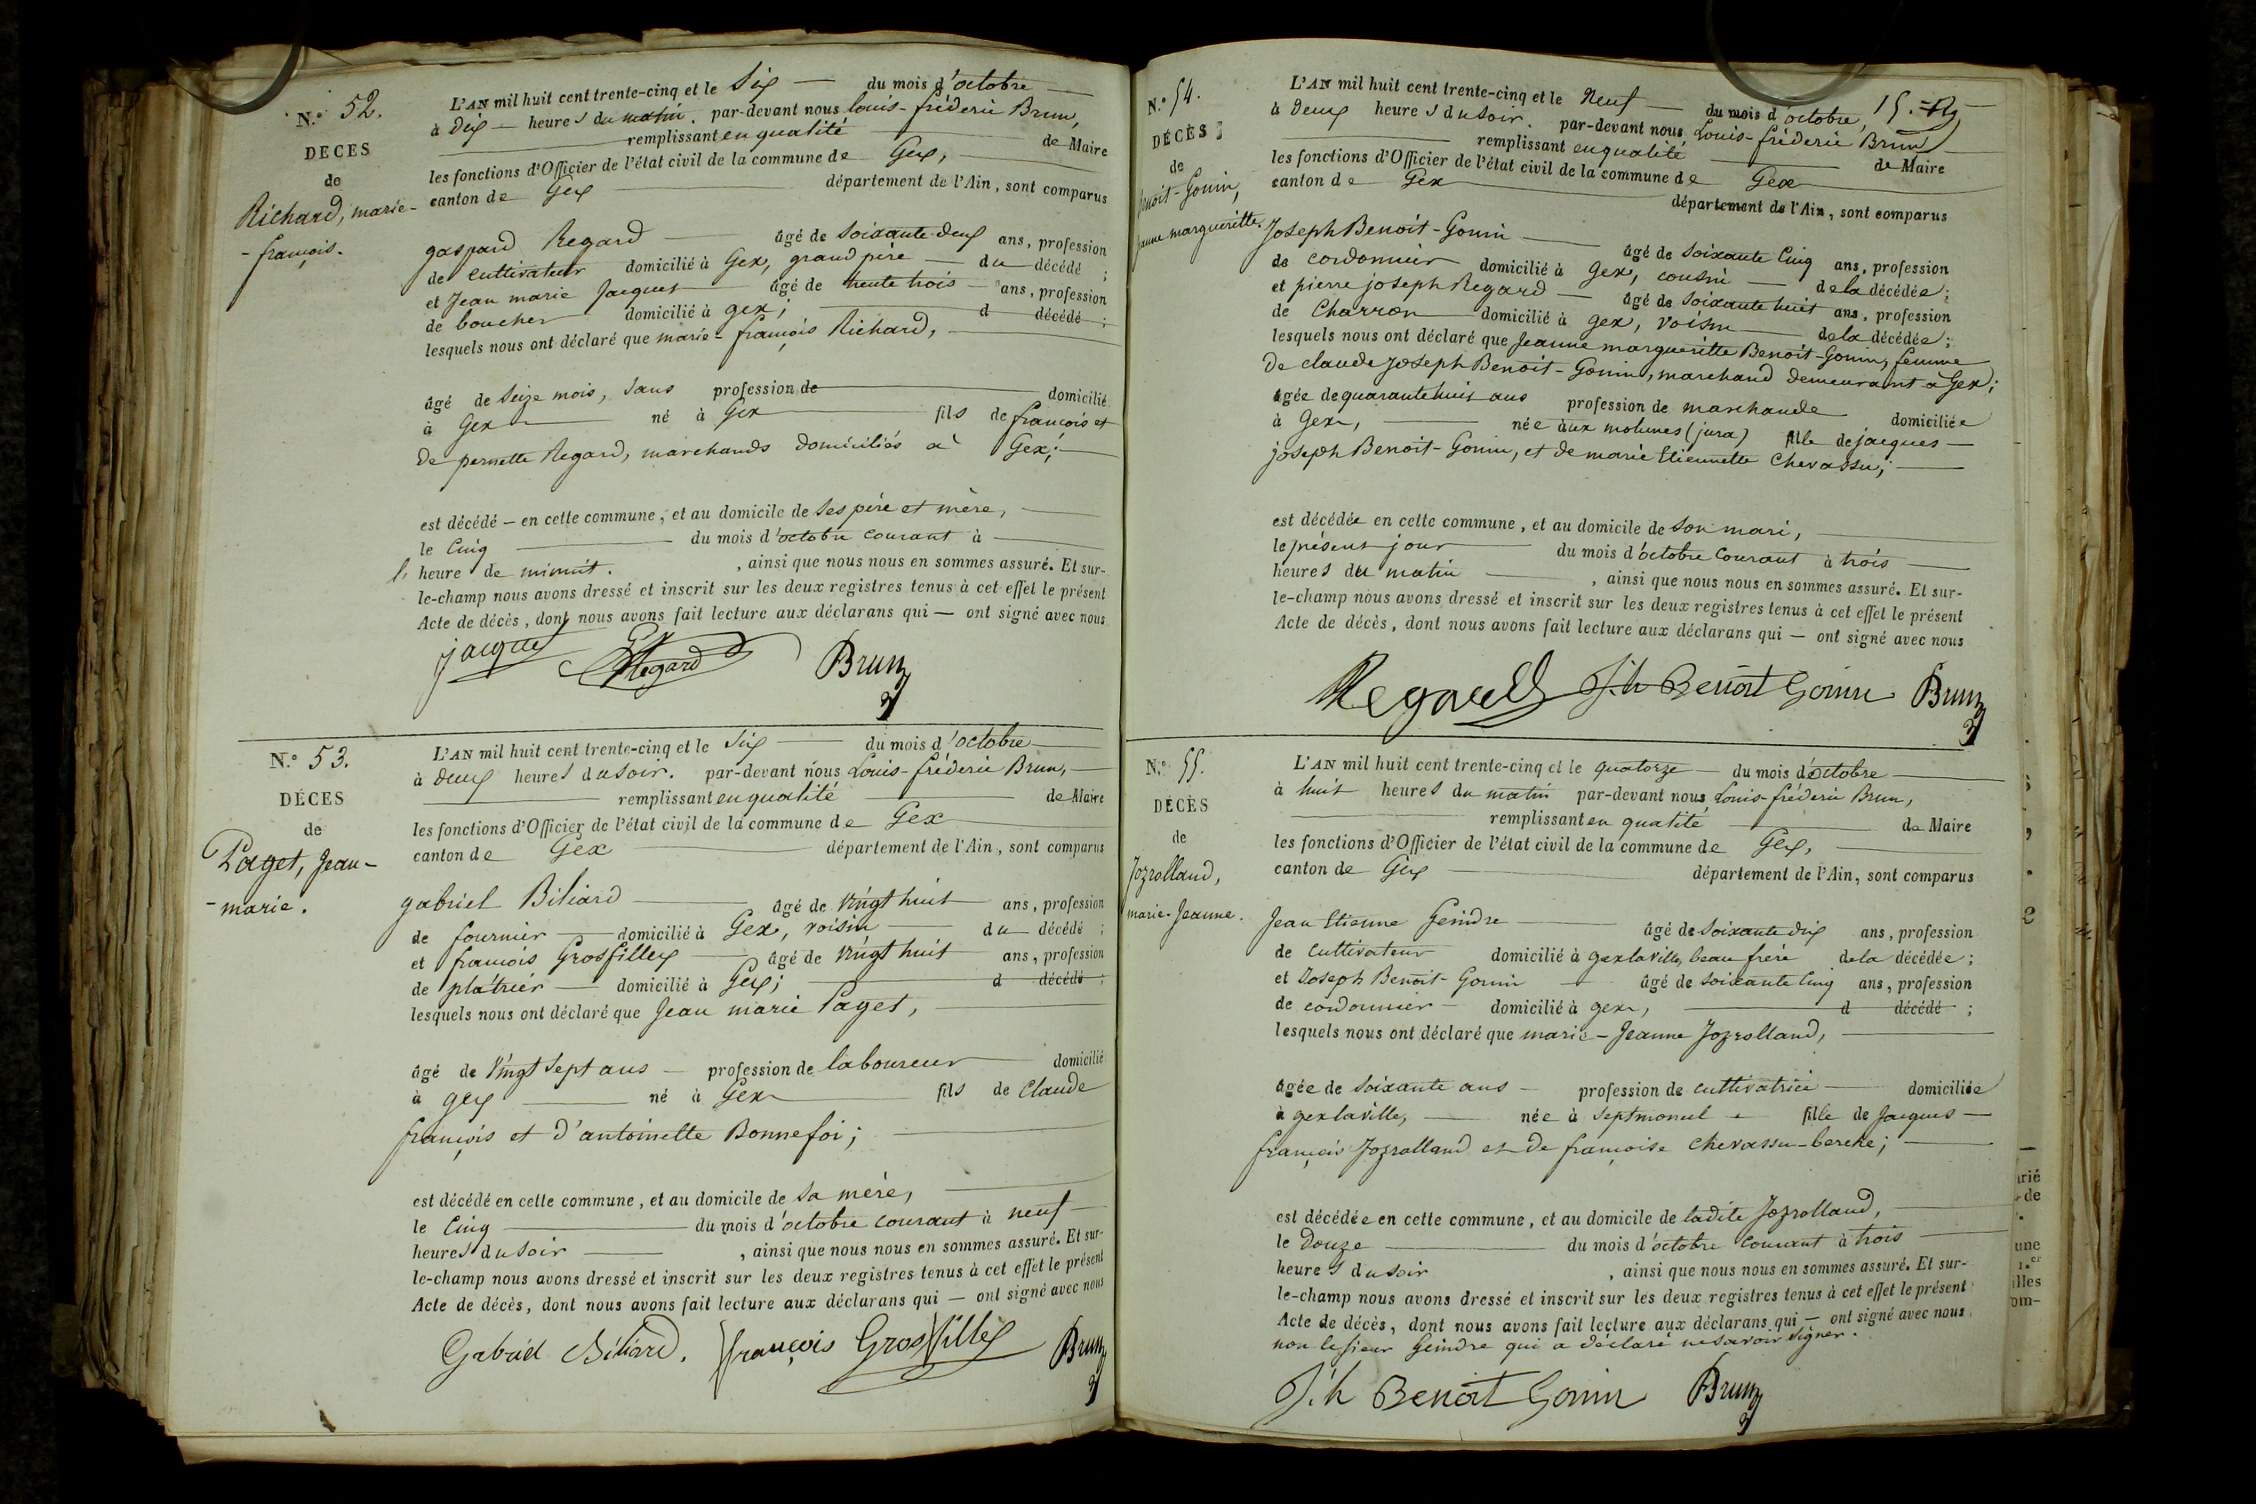 N.º 52.
DECES
de
Richard, marie-
-françois.
L'AN mil huit cent trente-cinq et le Six du mois d'octobre
à dix heures du matin. par-devant nous louis-fréderic Brun,
remplissant en qualité de Maire
les fonctions d'Officier de l'état civil de la commune de Gex,
canton de Gex département de l'Ain, sont comparus
gaspard Regard âgé de soixante-deux ans, profession
de cultivateur domicilié à Gex, grand père du décédé ;
et Jean marie Jacquet âgé de trente trois ans, profession
de boucher domicilié à gex; d décédé ;
lesquels nous ont déclaré que marie-françois Richard,
âgé de Seize mois, sans profession de domicilié
à Gex né à Gex fils de françois et
de pernette Regard, marchands domiciliés à Gex;
est décédé – en cette commune, et au domicile de ses père et mère,
le cinq du mois d'octobre courant à
l' heure de minuit. , ainsi que nous nous en sommes assuré. Et sur-
le-champ nous avons dressé et inscrit sur les deux registres tenus à cet effet le présent
Acte de décès, dont nous avons fait lecture aux déclarans qui — ont signé avec nous
jacquet Regard Brun
N.º 53.
DÉCES
de
Paget, Jean-
-marie.
L'AN mil huit cent trente-cinq et le Six du mois d'octobre
à deux heures du soir. par-devant nous Louis-fréderic Brun,
remplissant en qualité de Maire
les fonctions d'Officier de l'état civil de la commune de Gex
canton de Gex département de l'Ain, sont comparus
gabriel Biliard âgé de vingt huit ans, profession
de fournier domicilié à Gex, voisin du décédé ;
et françois Grosfilley âgé de vingt huit ans, profession
de plâtrier domicilié à Gex; d décédé ;
lesquels nous ont déclaré que Jean marie Paget,
âgé de vingt sept ans profession de laboureur domicilié
à gex né à Gex fils de Claude
françois et d'antoinette Bonnefoi;
est décédé en cette commune, et au domicile de sa mère,
le cinq du mois d'octobre courant à neuf
heures du soir , ainsi que nous nous en sommes assuré. Et sur-
le-champ nous avons dressé et inscrit sur les deux registres tenus à cet effet le présent
Acte de décès, dont nous avons fait lecture aux déclarans qui — ont signé avec nous
Gabriel Biliard. françois Grosfilley Brun
15.
N.º 54.
DÉCÈS
de
Benoit-Gonin,
jeanne margueritte.
L'AN mil huit cent trente-cinq et le neuf du mois d'octobre,
à deux heures du soir. par-devant nous Louis-fréderic Brun
remplissant en qualité de Maire
les fonctions d'Officier de l'état civil de la commune de Gex
canton de Gex département de l'Ain, sont comparus
Joseph Benoit-Gonin âgé de soixante cinq ans, profession
de cordonnier domicilié à gex, cousin de la décédée;
et pierre joseph Regard âgé de soixante huit ans, profession
de charron domicilié à gex, voisin de la décédée;
lesquels nous ont déclaré que jeanne marguerite Benoit-Gonin, femme
de claude joseph Benoit-Gonin, marchand demeurant à Gex;
âgée de quarante huit ans profession de marchande domiciliée
à Gex, née aux molunes (jura) fille de jacques
joseph Benoit-Gonin, et de marie Etiennette Chevassu;
est décédée en cette commune, et au domicile de son mari,
le présent jour du mois d'octobre courant à trois
heures du matin , ainsi que nous nous en sommes assuré. Et sur-
le-champ nous avons dressé et inscrit sur les deux registres tenus à cet effet le présent
Acte de décès, dont nous avons fait lecture aux déclarans qui — ont signé avec nous
Regard J.h Benoit Gonin Brun
N.º 55.
DÉCÈS
de
Jozrolland,
marie-Jeanne.
L'AN mil huit cent trente-cinq et le quatorze du mois d'octobre
à huit heures du matin par-devant nous Louis-fréderic Brun,
remplissant en qualité de Maire
les fonctions d'Officier de l'état civil de la commune de Gex,
canton de Gex département de l'Ain, sont comparus
Jean Etienne Geindre âgé de soixante dix ans, profession
de cultivateur domicilié à gex la ville, beau frère de la décédée;
et Joseph Benoit-Gonin âgé de soixante cinq ans, profession
de cordonnier domicilié à gex, d décédé ;
lesquels nous ont déclaré que marie-Jeanne Jozrolland,
âgée de soixante ans profession de cultivatrice domiciliée
à gex la ville, née à septmoncel fille de Jacques
françois Jozrolland et de françoise chevassu-berche;
est décédée en cette commune, et au domicile de ladite Jozrolland,
le douze du mois d'octobre courant à trois
heures du soir , ainsi que nous nous en sommes assuré. Et sur-
le-champ nous avons dressé et inscrit sur les deux registres tenus à cet effet le présent
Acte de décès, dont nous avons fait lecture aux déclarans qui — ont signé avec nous
non le sieur Geindre qui a déclaré ne savoir signer.
J.h Benoit Gonin Brun